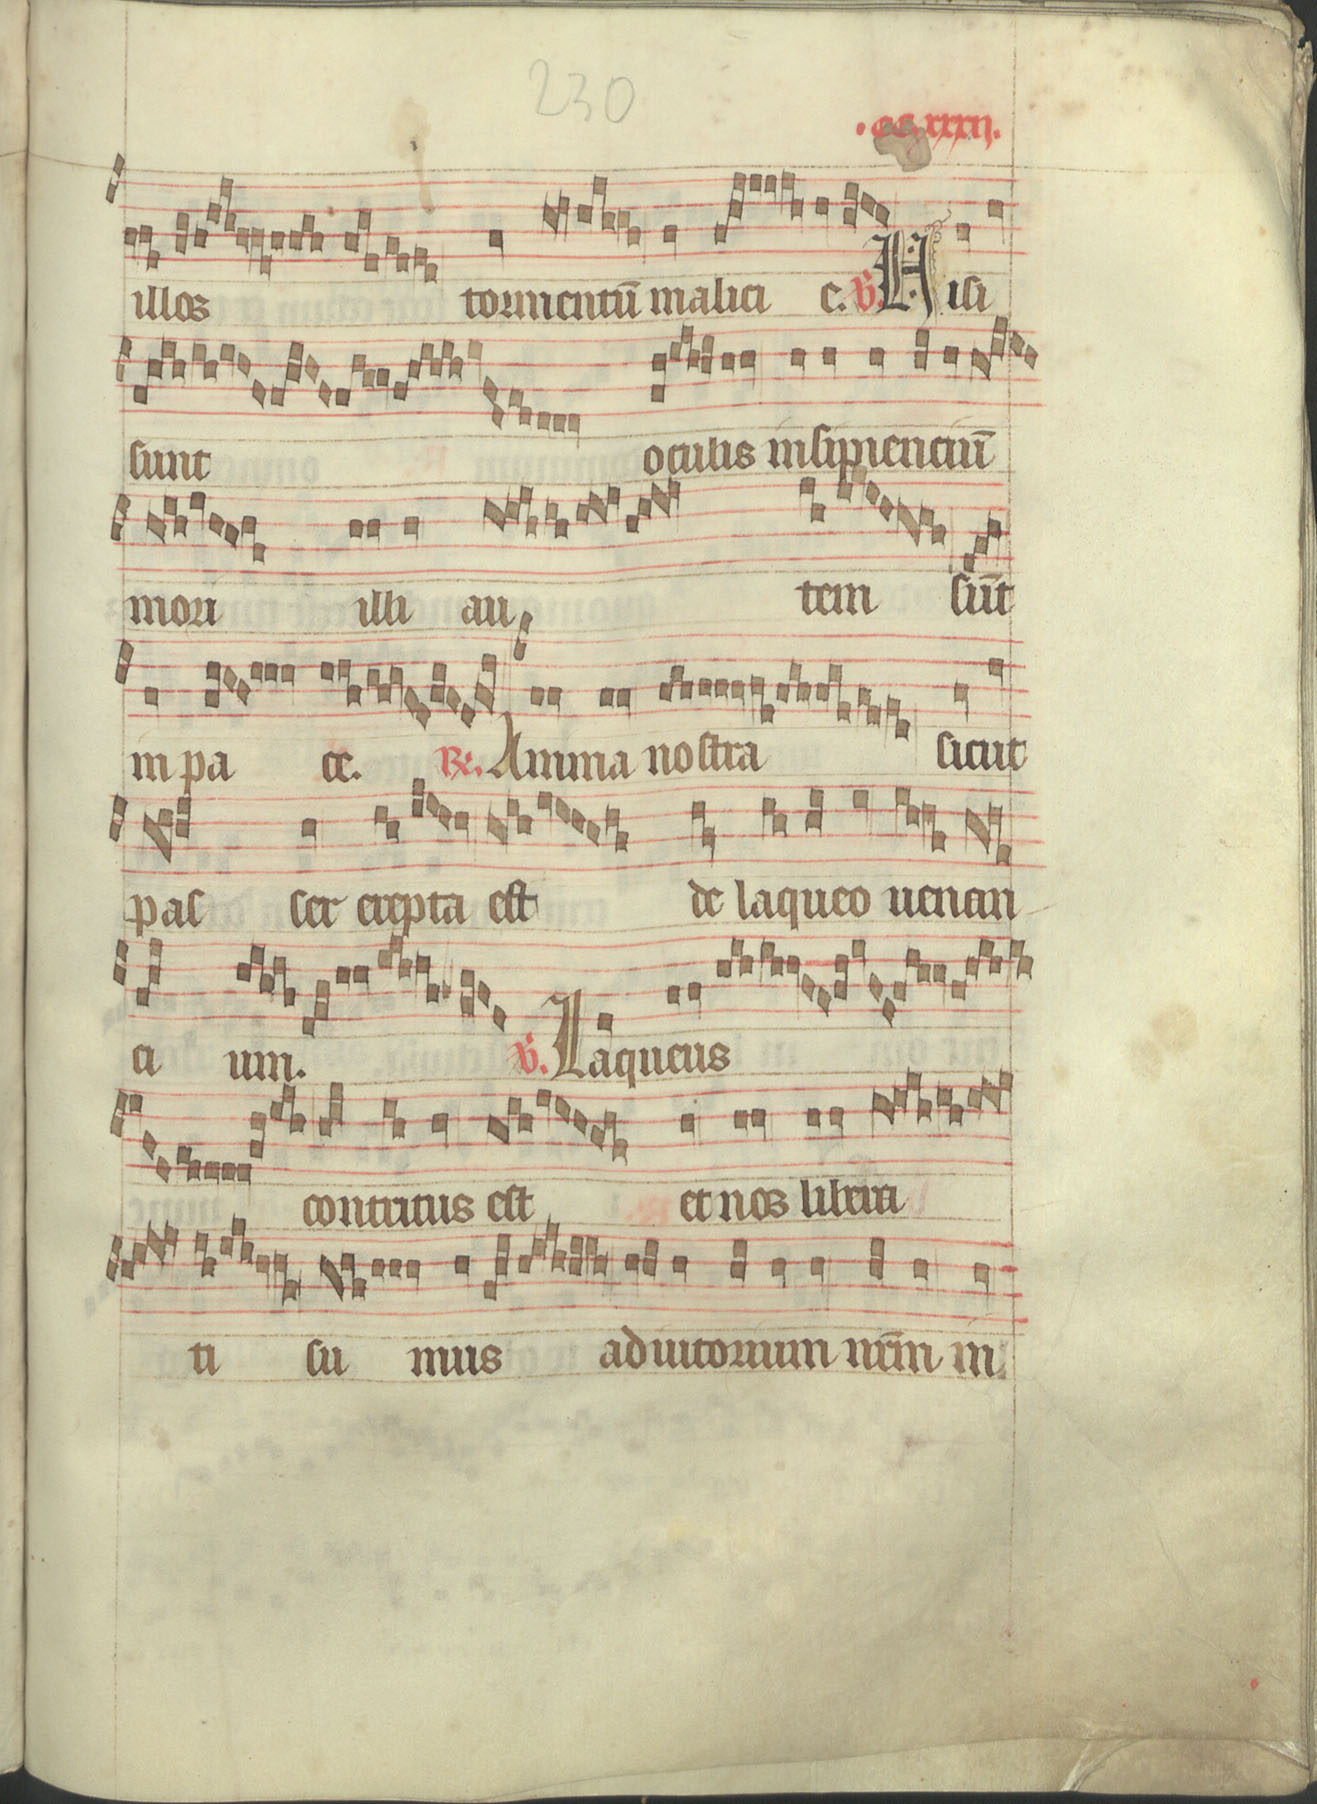 230
.cc.xxxii.
illos tormentū malici e. v̄. Visi
sunt oculis insipienciū
mori illi au tem sūt
in pa ce. R. Anima nostra sicut
pas ser erepta est de laqueo uenan
ci um. v̄. Laqueus
contritus est et nos libera
ti su mus adiutorium nrm̄ in